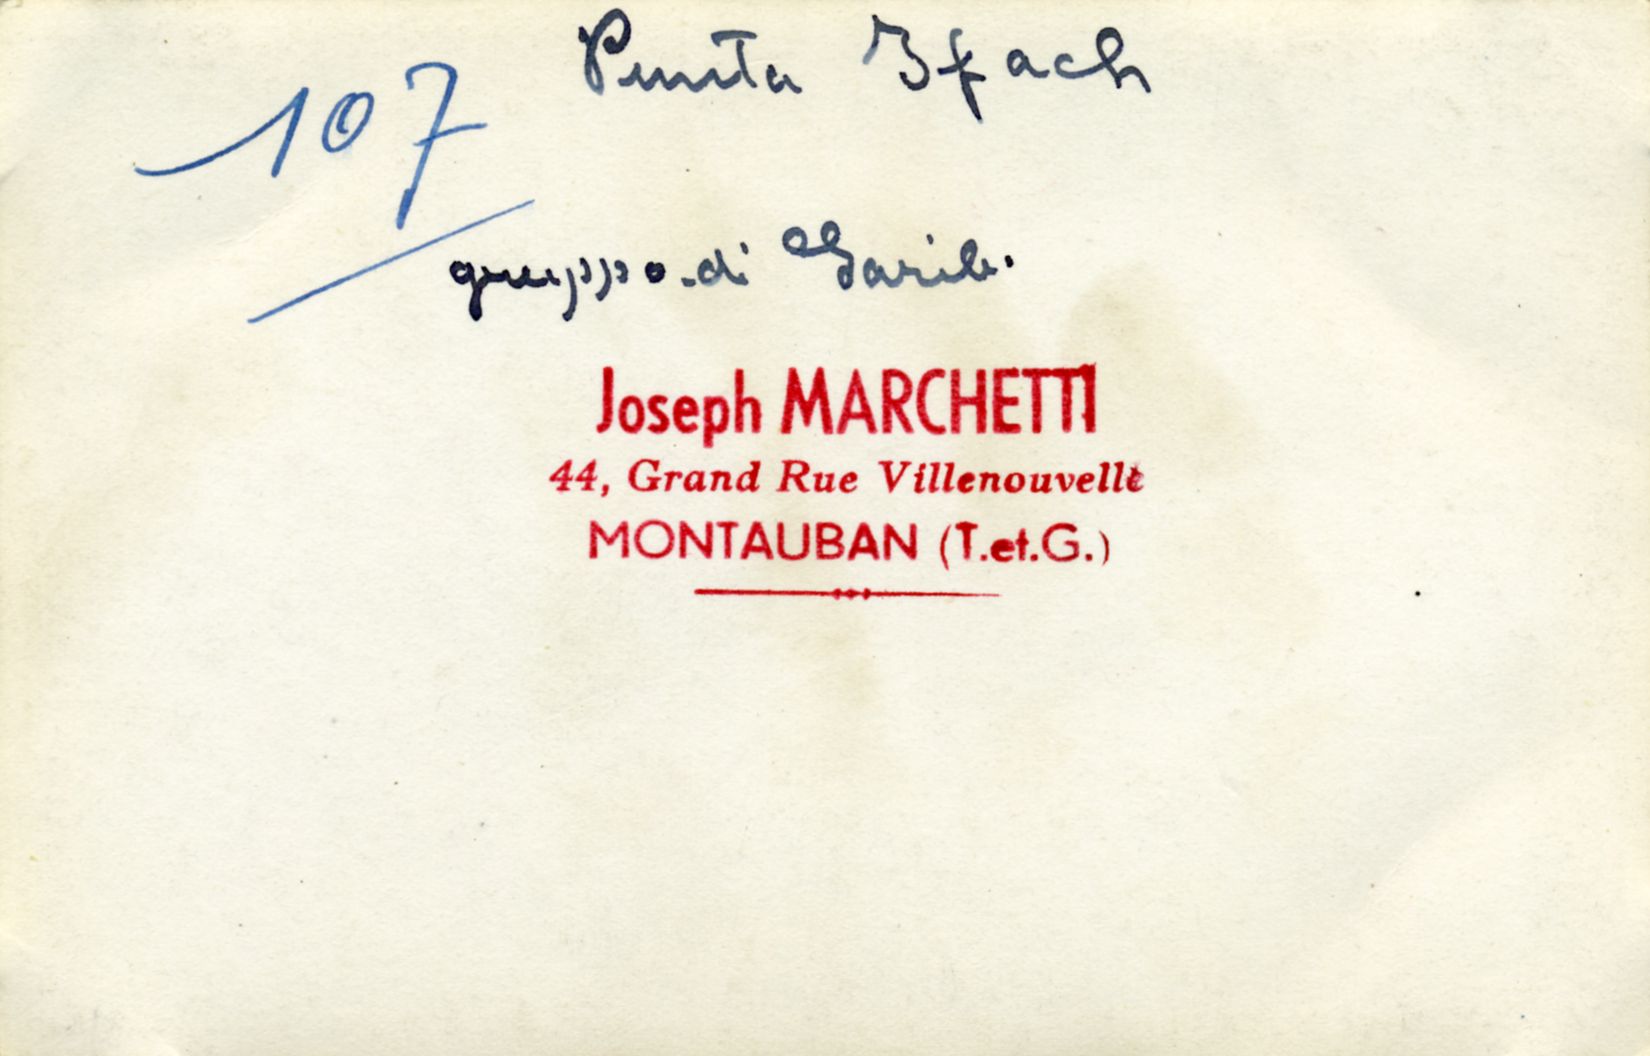 107
Punta Ifach
gruppo di Garib.
Joseph MARCHETTI
44, Grand Rue Villenouvelle
MONTAUBAN (T.et.G.)